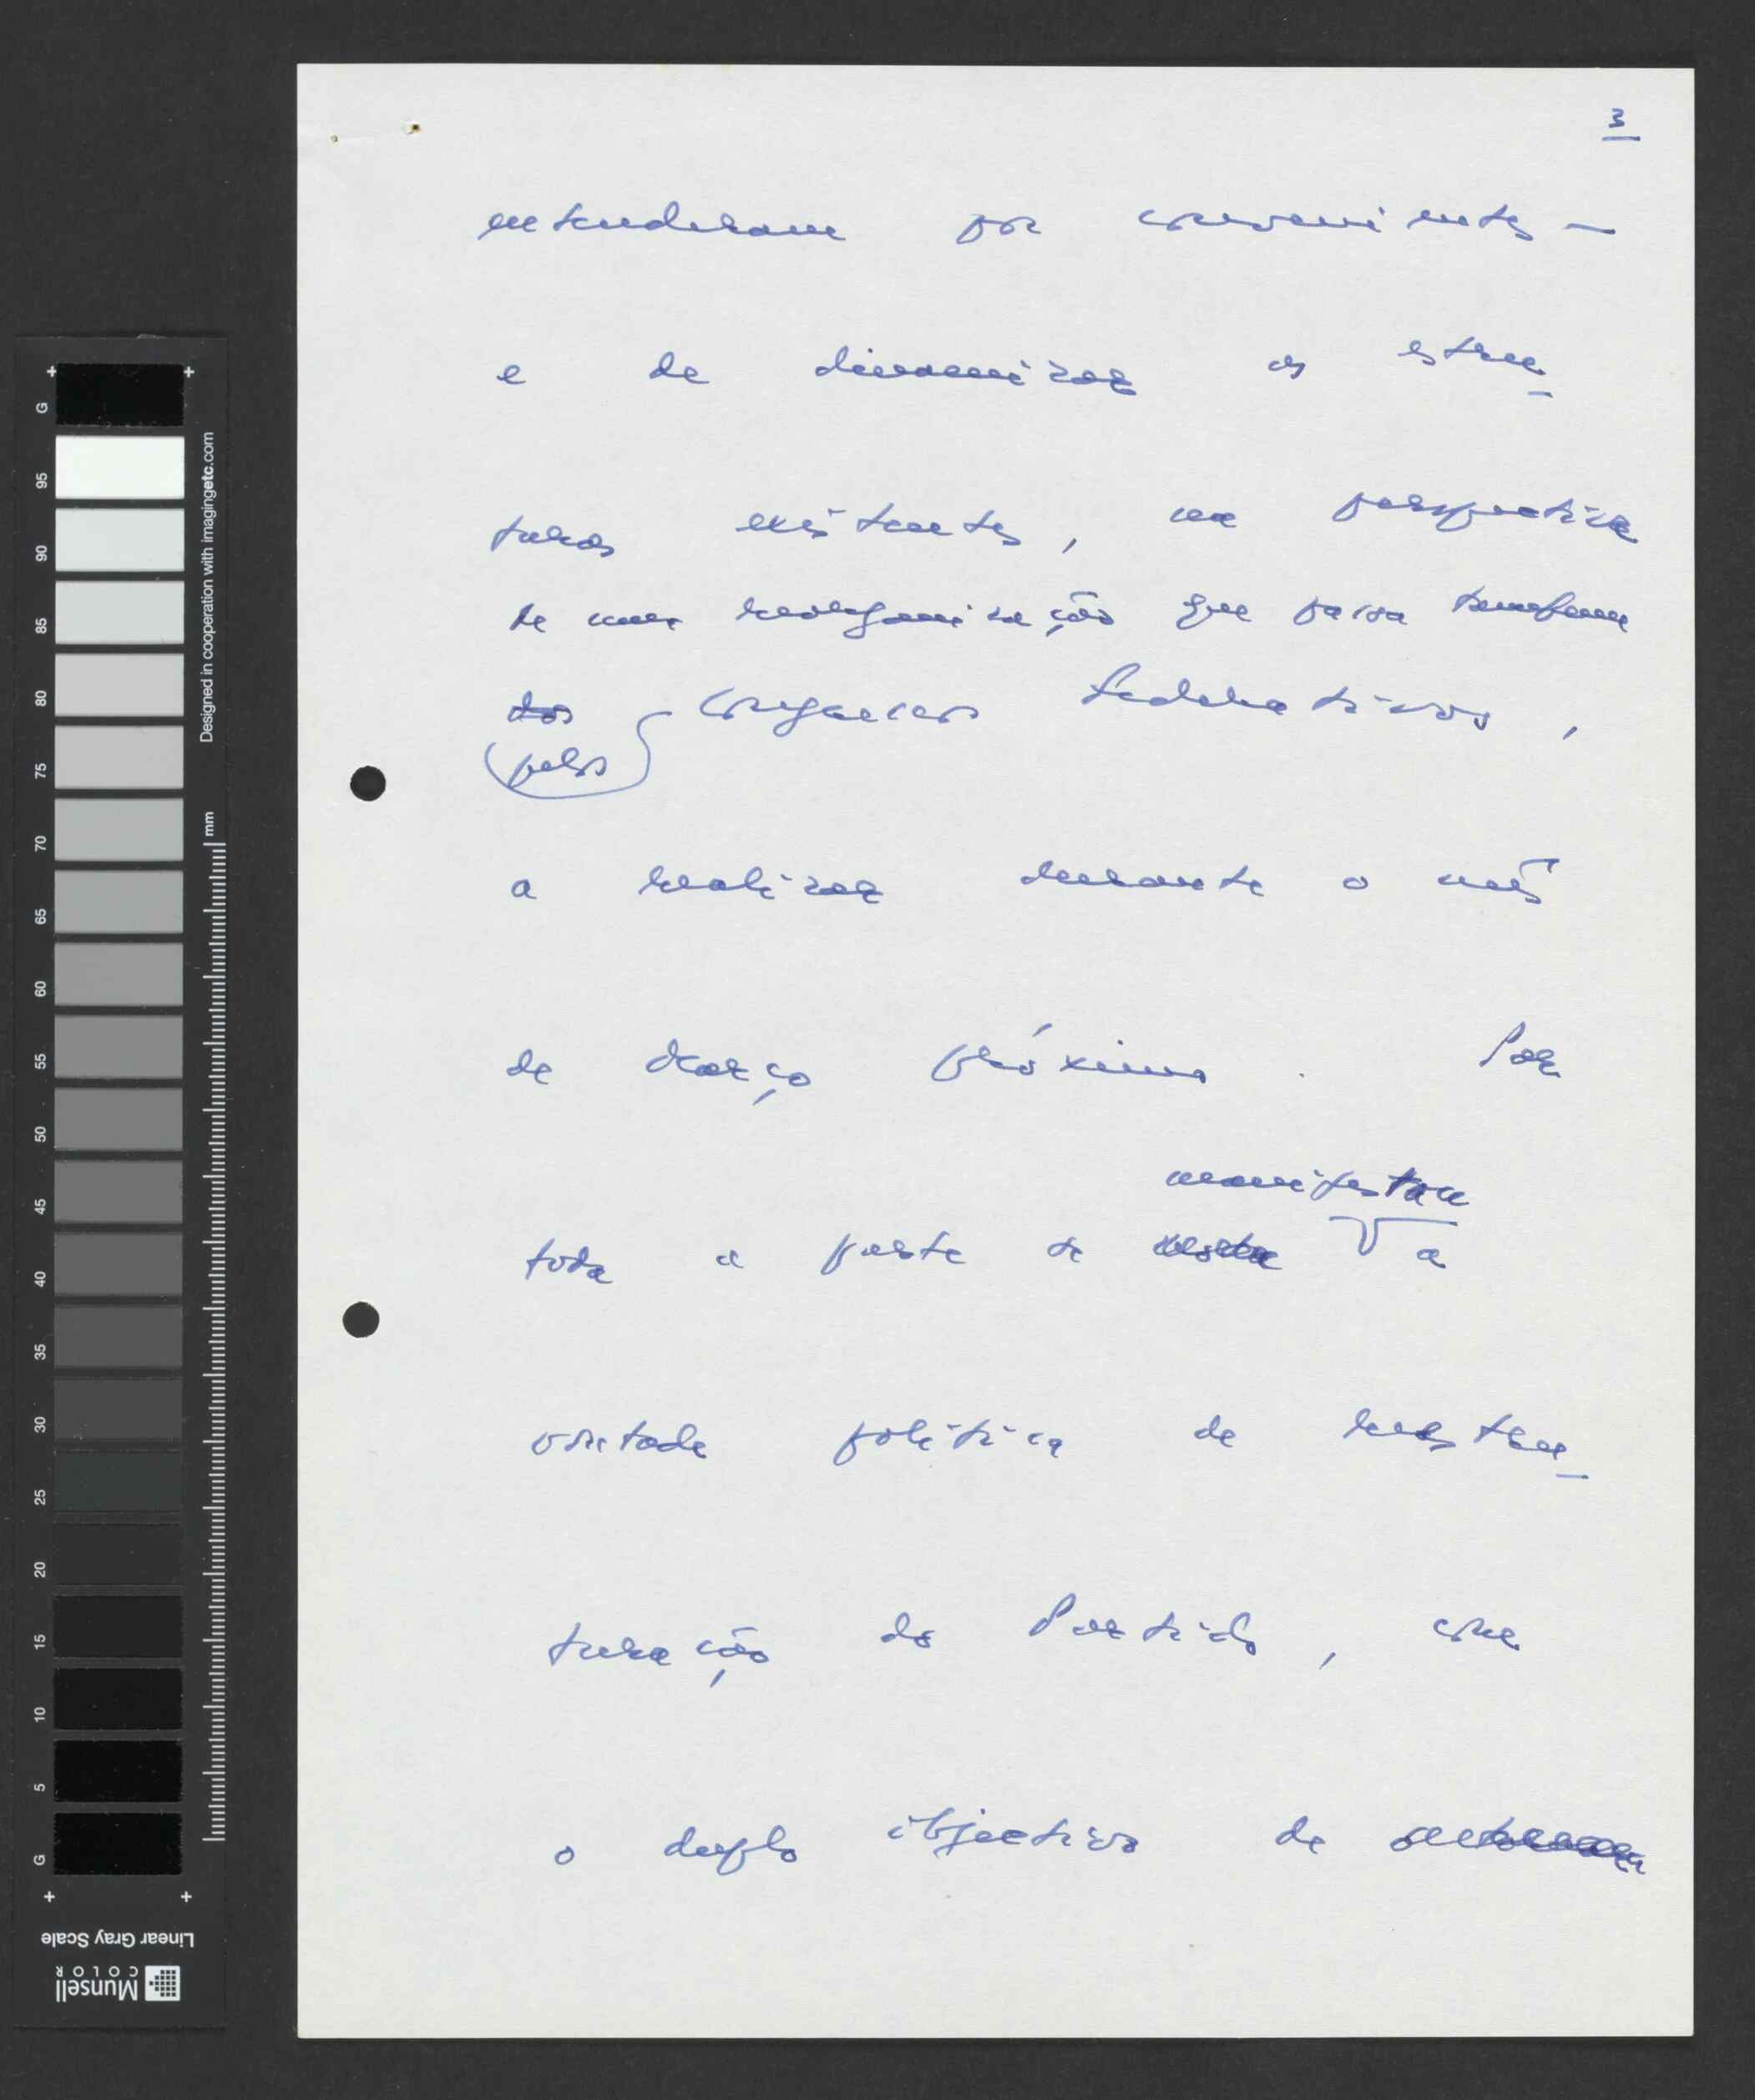 3
entenderam por convenientes —
e de dinamizar as estru_
turas existentes, na perspectiva
de uma reorganização que passa também
dos Congressos Federativos,
pelos
a realizar durante o mês
de Março próximo. Por
manifestou
toda a parte se a
vontade política de reestru_
turação do Partido, com
o duplo objectivo de
G 95 90 85 80 75 70 65 60 55 50 45 40 35 30 25 20 15 10 5 G
Designed in cooperation with imagingetc.com
mm
Linear Gray Scale
Munsell
COLOR